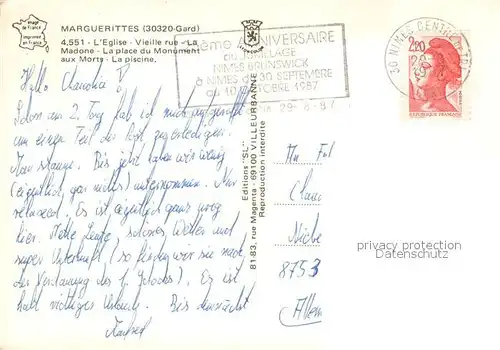 image de France
imprimé en France
MARGUERITTES (30320-Gard)
4.551 - L'Eglise - Vieille rue - La
Madone - La place du Monument
aux Morts - La piscine.
ANNIVERSAIRE
du JUMELAGE
NIMES BRUNSWICK
à NIMES SEPTEMBRE
au 10 OCTOBRE 1987
30 NIMES CENTRE
2,20
REPUBLIQUE FRANÇAISE
29-8-87
Hallo Claudia!
Schon am 2. Tag hab ich mich aufgerafft
um einen Teil der Post zu erledigen.
Man staune. Bis jetzt haben wir wenig
(eigentlich gar nichts) unternommen. Nur
relaxed. Es ist eigentlich ganz
hier. Nette Leute, schönes Wetter und
super Unterkunft (so finden wir sie nach
der Verdauung des 1. Schocks). Es ist
halt richtiger Urlaub. Bis demnächst
Manfred
Editions "SL"
81-83, rue Magenta - 69100 VILLEURBANNE
Reproduction interdite
An Frl
Clau
8753
Allem
privacy protection
Datenschutz